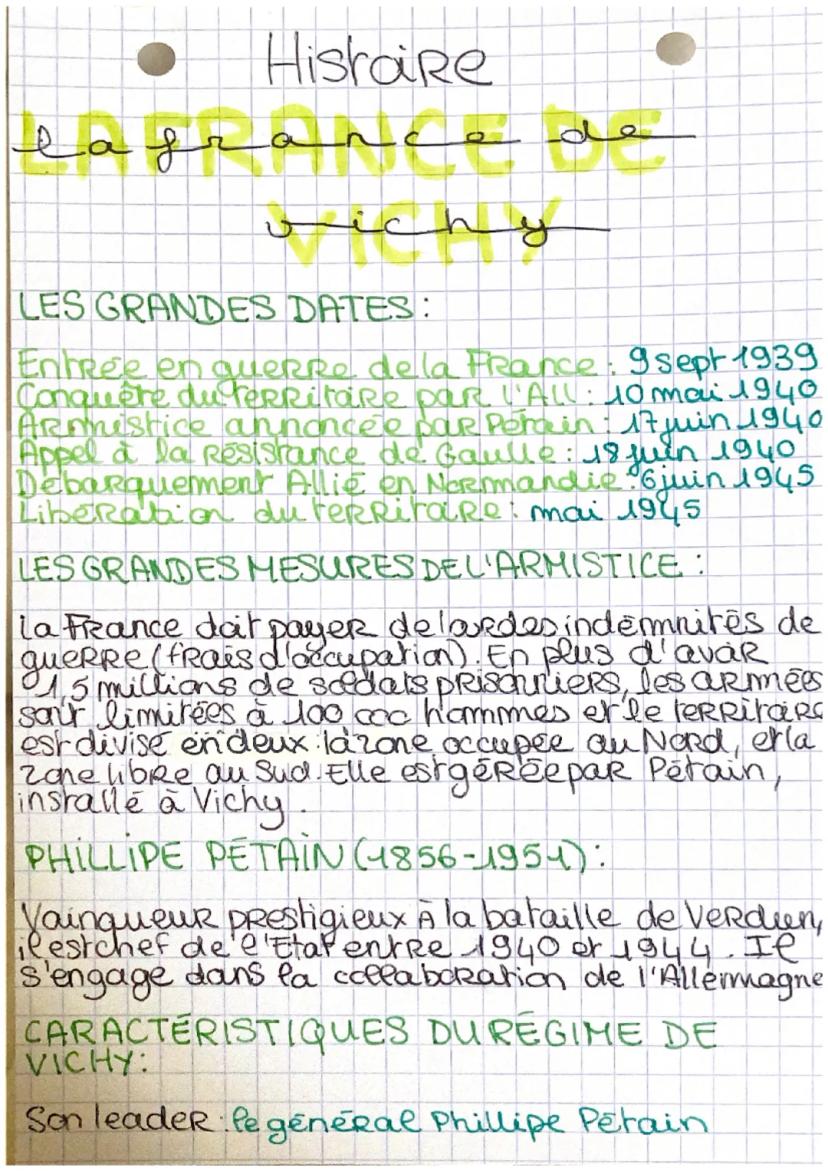 Histoire
LA FRANCE DE
la france de
VICHY
vichy
LES GRANDES DATES :
Entrée en guerre de la France : 9 sept 1939
Conquête du territoire par l'All : 10 mai 1940
Armistice annoncée par Pétain : 17 juin 1940
Appel à la résistance de Gaulle : 18 juin 1940
Débarquement Allié en Normandie : 6 juin 1945
Libération du territoire : mai 1945
LES GRANDES MESURES DE L'ARMISTICE :
La France doit payer de lourdes indemnités de
guerre (frais d'occupation). En plus d'avoir
1,5 millions de soldats prisonniers, les armées
sont limitées à 100 000 hommes et le territoire
est divisé en deux : la zone occupée au Nord, et la
zone libre au Sud. Elle est gérée par Pétain,
installé à Vichy.
PHILLIPE PÉTAIN (1856-1951) :
Vainqueur prestigieux à la bataille de Verdun,
il est chef de l'Etat entre 1940 et 1944. Il
s'engage dans la collaboration de l'Allemagne
CARACTÉRISTIQUES DU RÉGIME DE
VICHY :
Son leader : le général Phillipe Pétain